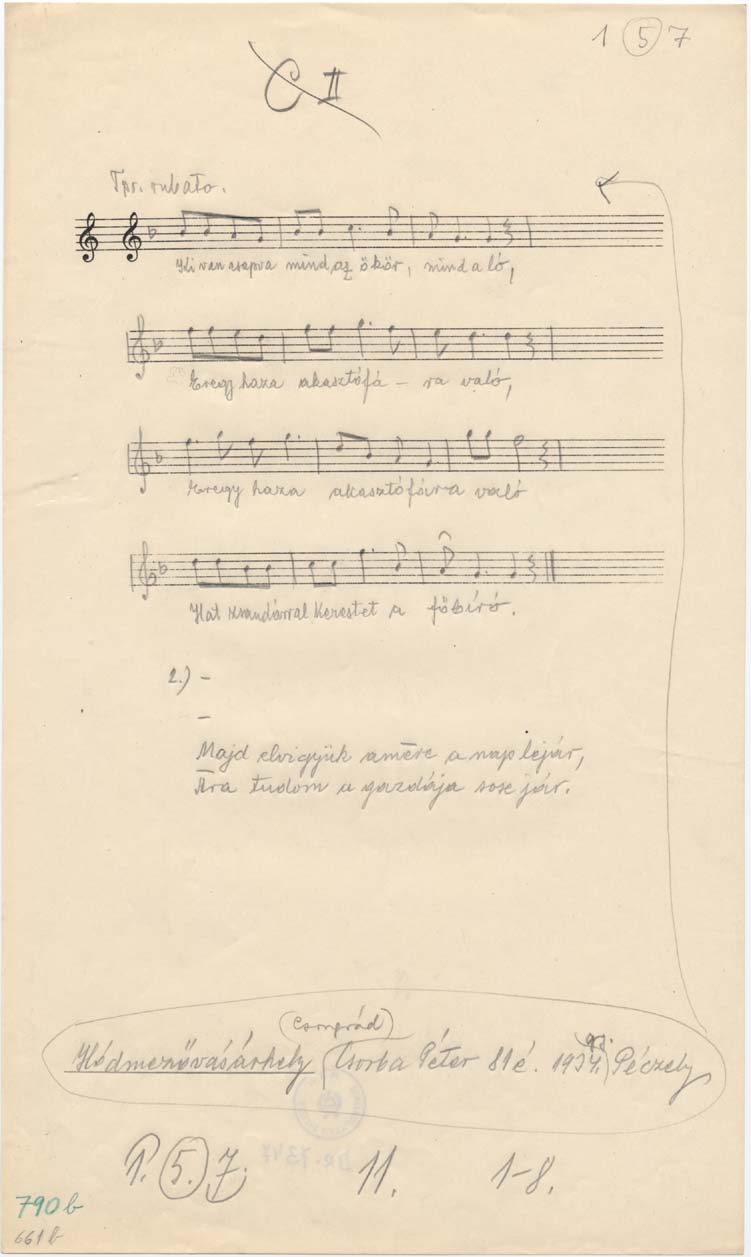 1 5 7
C II
Tpr. rubato.
Ki van csapva mind az ökör, mind a ló,
Eregy haza akasztófá - ra való,
Eregy haza akasztófára való
Hat zsandárral kerestet a főbíró.
2.) -
-
Majd elvigyük amēre a nap lejár,
Āra tudom a gazdája sose jár.
(Csongrád)
Hódmezővásárhely (Csorba Péter 81 é. 1934.) Péczely
1. 5. 7. 11. 1-8.
790 b
661 b